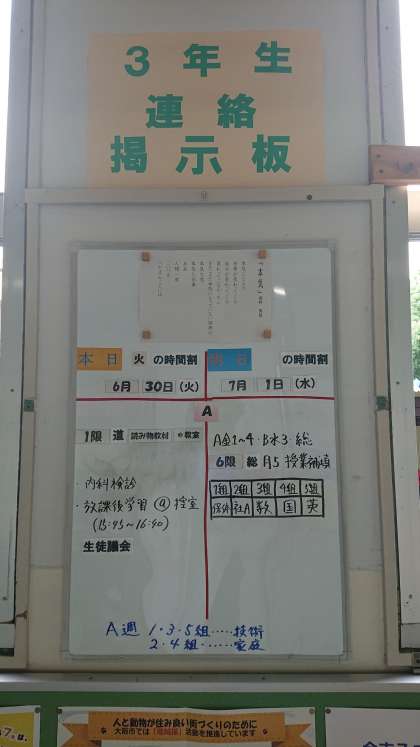 3年生
連絡
掲示板
本日 火 の時間割
明日 の時間割
6月 30日(火)
7月 1日(水)
A
1限 道 読み物教材 @教室
A金1~4・B水3・総
6限 総 月5 授業補填
・内科検診
・放課後学習 @控室
(15:45~16:40)
生徒議会
1組 2組 3組 4組 5組
保体 社A 数 国 英
A週 1・3・5組……技術
2・4組……家庭
人と動物が住み良い街づくりのために